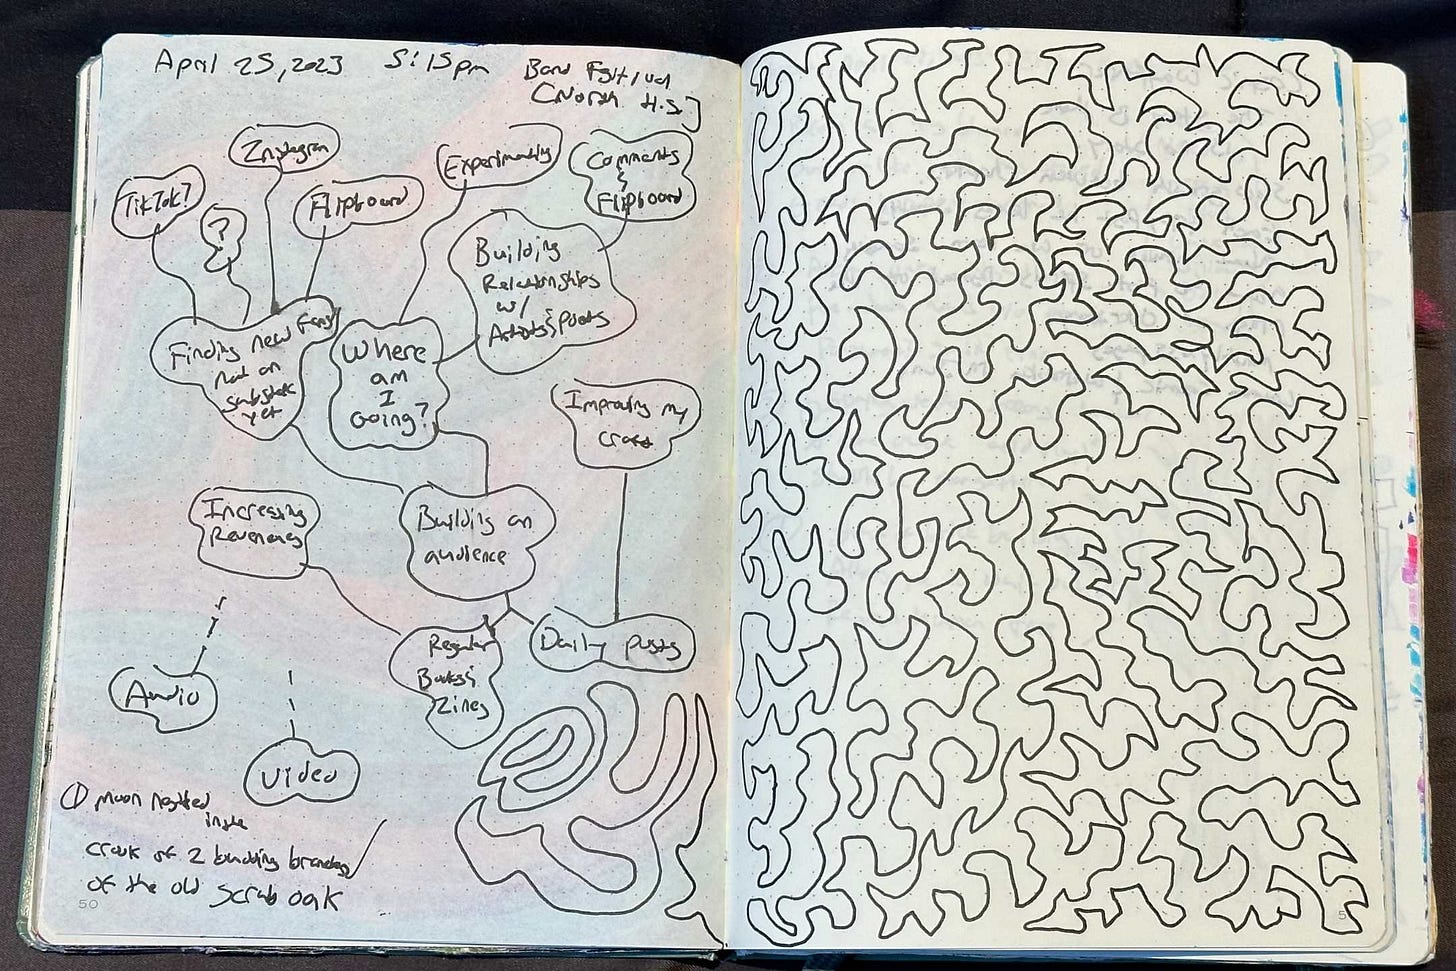 April 25, 2023 5:15pm Band Festival
[North H.S.]
Instagram
Experimenting
Comments
&
Flipboard
TikTok?
?
Flipboard
Building
Relationships
w/
Artists & Poets
Finding new fans
not on
substack
yet
Where
am
I
Going?
Improving my
craft
Increasing
Revenues
Building an
audience
Regular
Books &
Zines
Daily posts
Audio
Video
moon nestled
inside
crook of 2 budding branches
of the old scrub oak
50